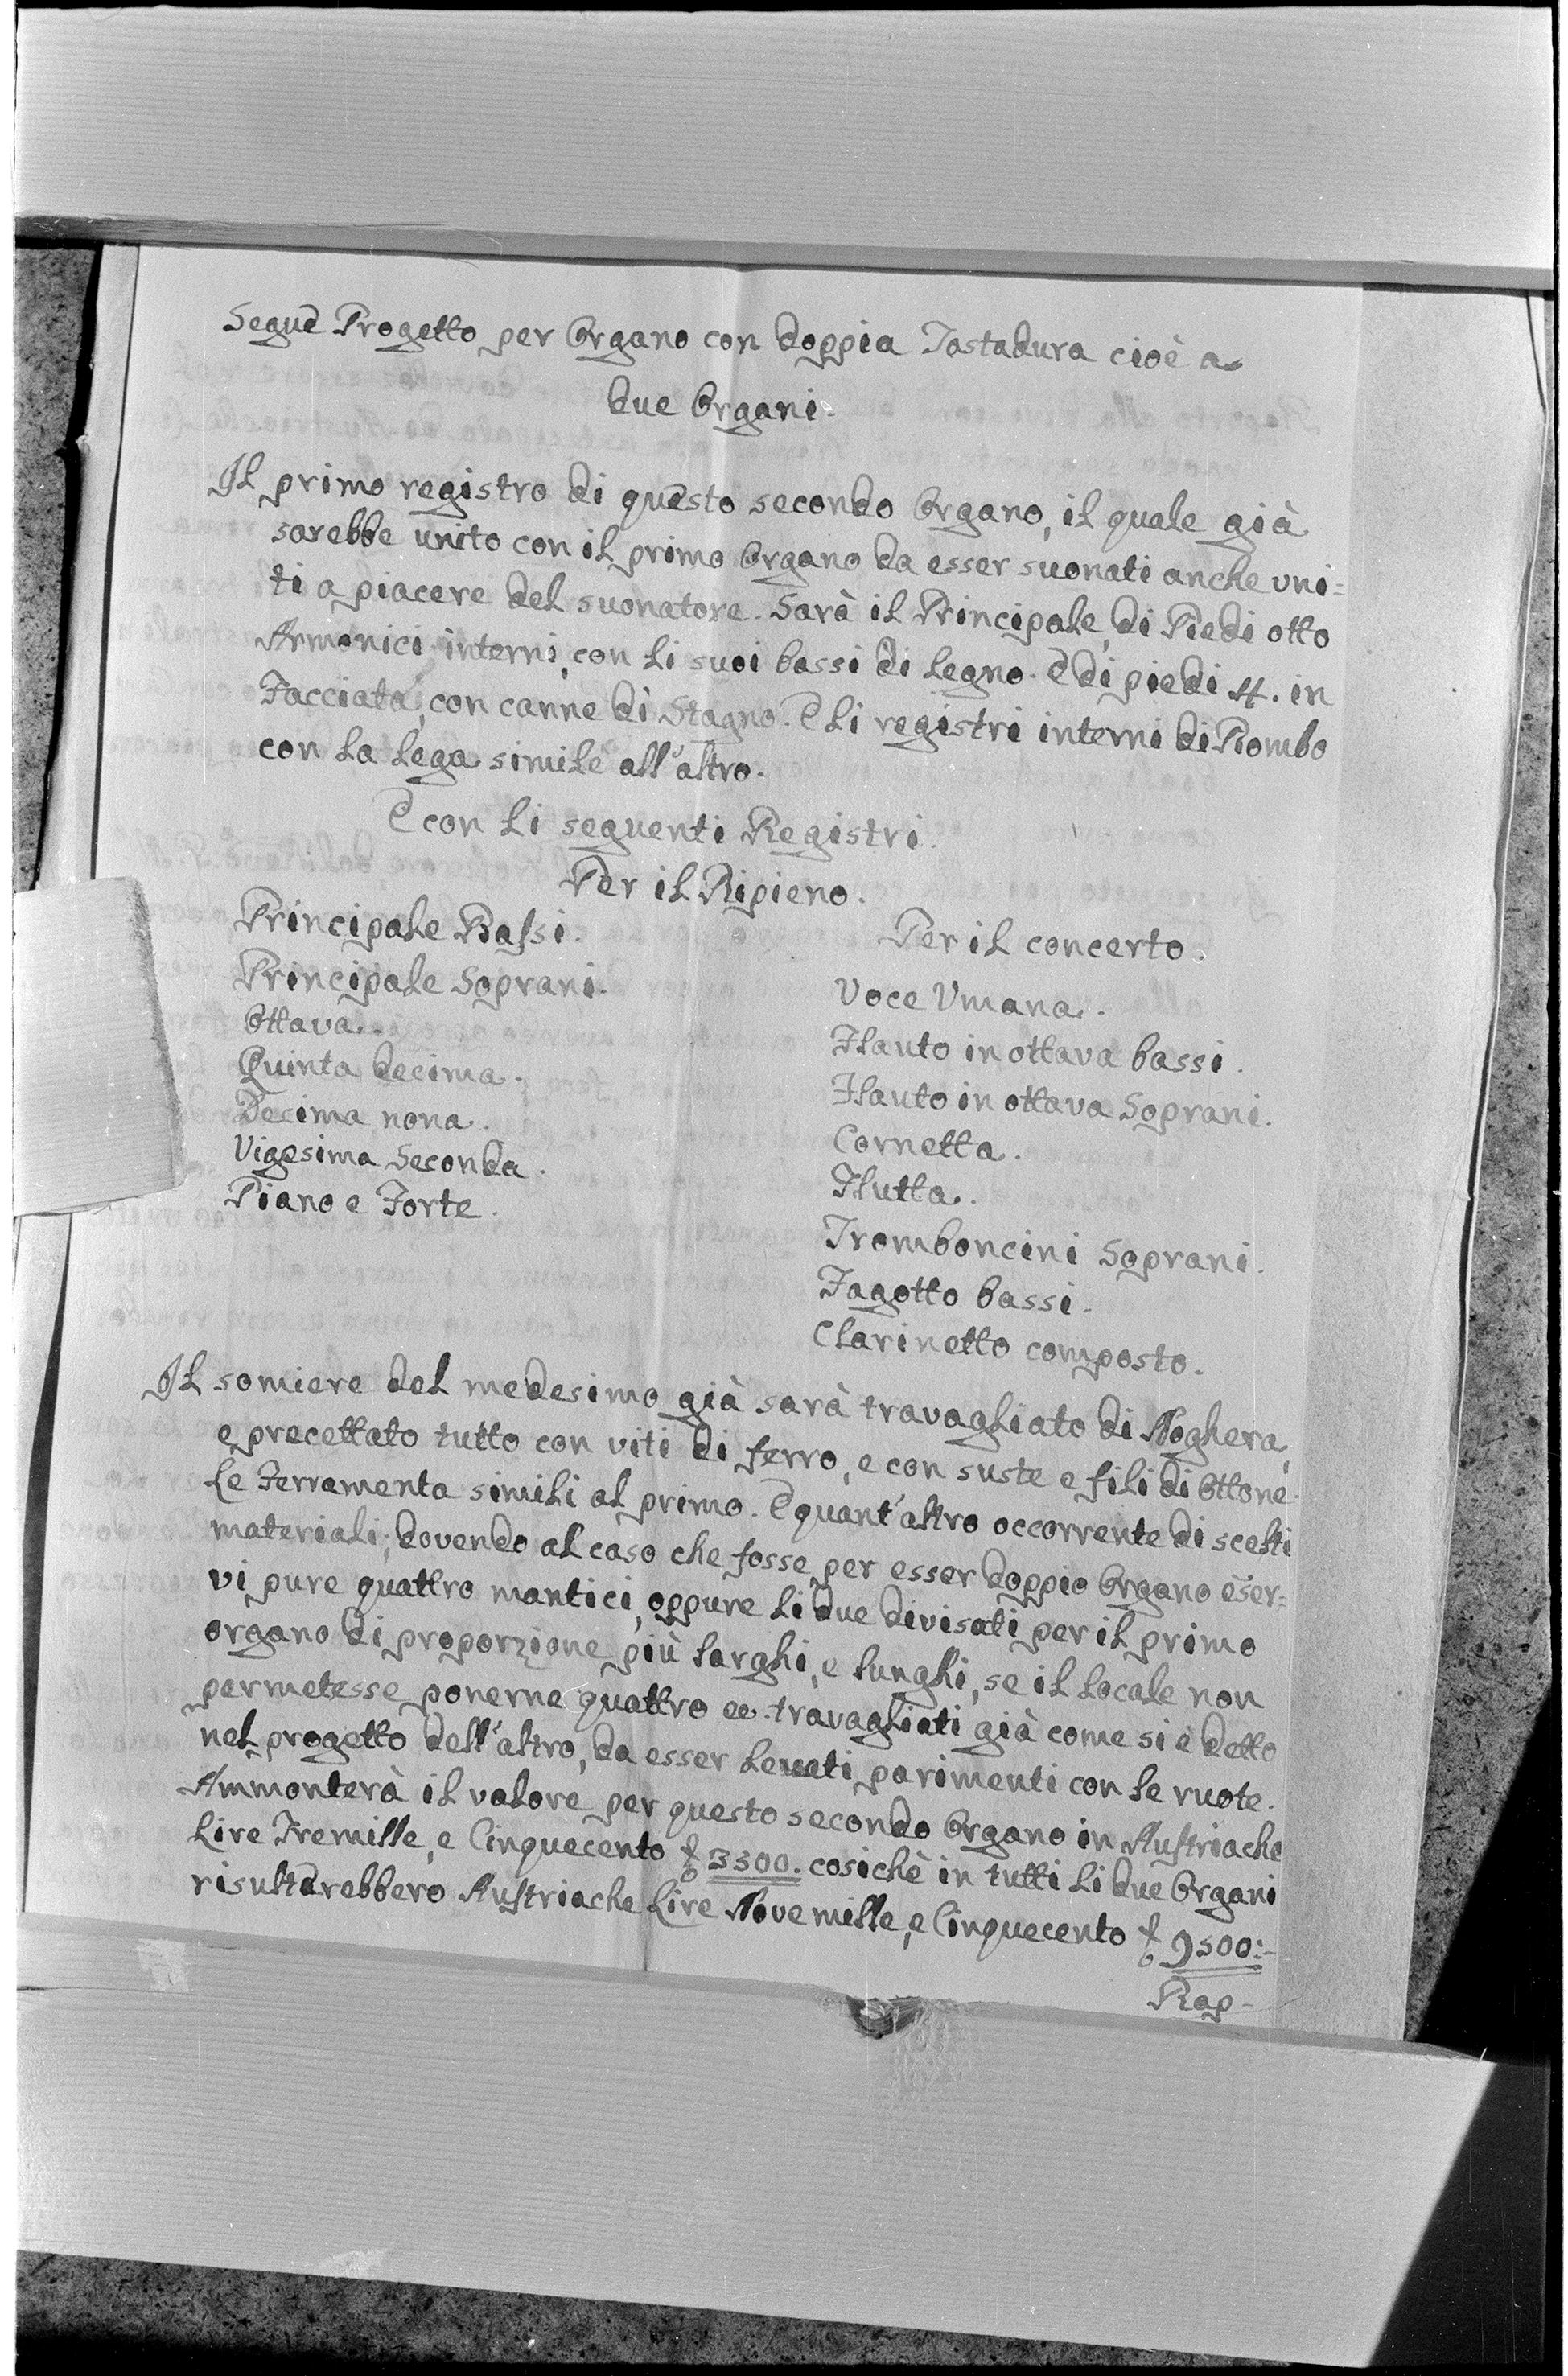 Segue Progetto per Organo con doppia Tastadura cioè a
due Organi.
Il primo registro di questo secondo Organo, il quale già
sarebbe unito con il primo Organo da esser suonati anche uni=
ti a piacere del suonatore. Sarà il Principale, di Piedi otto
Armonici interni, con li suoi bassi di legno. E di piedi 4. in
Facciata, con canne di Stagno. E li registri interni di Piombo
con la lega simile all'altro.
E con li seguenti Registri.
Per il Ripieno.
Principale Bassi.
Principale Soprani.
Ottava.
Quinta decima.
Decima nona.
Vigesima Seconda.
Piano e Forte.
Per il concerto.
Voce Umana.
Flauto in ottava bassi.
Flauto in ottava Soprani.
Cornetta.
Flutta.
Tromboncini Soprani.
Fagotto bassi.
Clarinetto composto.
Il somiere del medesimo già sarà travagliato di Noghera,
e precettato tutto con viti di ferro, e con suste e fili di Ottone.
Le Ferramenta simili al primo. E quant'altro occorrente di scelti
materiali; dovendo al caso che fosse, per esser doppio Organo eser=
vi pure quattro mantici, oppure li due divisati per il primo
organo di proporzione più larghi, e lunghi, se il locale non
permetesse ponerne quattro ee. travagliati già come si è detto
nel progetto dell'altro, da esser levati parimenti con le ruote.
Ammonterà il valore per questo secondo Organo in Austriache
Lire Tremille, e Cinquecento £ 3500. cosichè in tutti li due Organi
risultarebbero Austriache Lire Nove mille, e Cinquecento £ 9500:-
Rap-